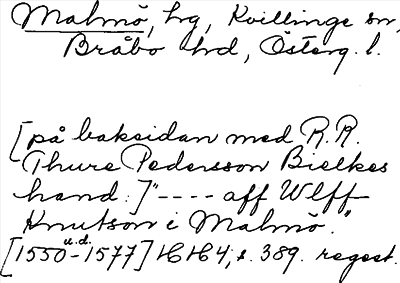 Malmö, hg, Kvillinge sn,
Bråbo hd, Österg. l.
[på baksidan med R. R.
Thure Pedersson Bielkes
hand:]"---- aff Wlff
Knutson i Malmö."
[1550 u.d. -1577] HH4, s. 389. regest.